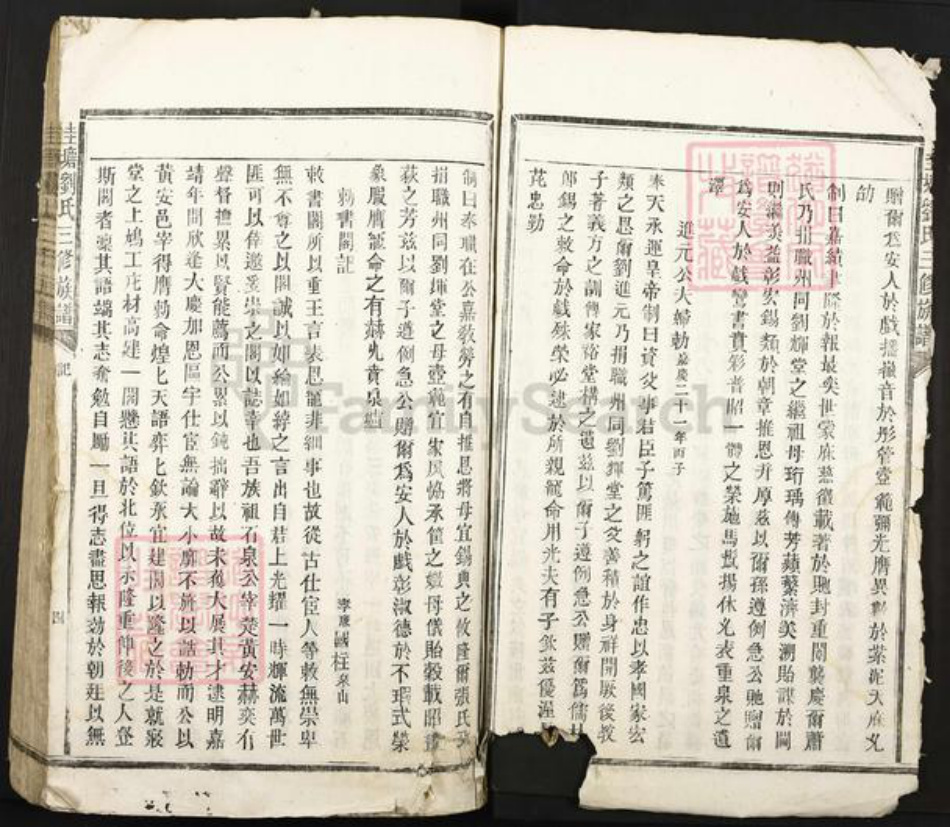 贈爾爲安人於戲播徽音於彤管壼範彌光膺異數於紫泥大庥乂
劭
制曰嘉績丕隆於報最奕世蒙庥慈徽載著於貤封重闈襲慶爾蕭
氏乃捐職州同劉輝堂之繼祖母珩瑀傳芳蘋蘩濟美溯貽謀於閫
則瀰美益彰宏錫類於朝章推恩弁厚兹以爾孫遵例急公貤贈爾
爲安人於戲鸞書賁彩普昭一體之榮施馬鬣揚休光表重泉之遺
澤
進元公夫婦勅嘉慶二十一年丙子
奉天承運皇帝制曰資父事君臣子篤匪躬之誼作忠以孝國家宏
類之恩爾劉進元乃捐職州同劉輝堂之父善積於身祥開厥後教
子著義方之訓傳家裕堂構之遺兹以爾子遵例急公贈爾爲儒林
郎錫之敕命於戲殊榮必逮於所親寵命用光夫有子欽兹優渥
芘忠勤
制曰奉職在公嘉教勞之有自推恩將母宜錫典之攸隆爾張氏乃
捐職州同劉煇堂之母壼範宜家夙恊承筐之媺母儀貽穀載昭晝
荻之芳兹以爾子遵例急公贈爾爲安人於戲彰淑德於不瑕式榮
象服膺寵命之有赫光賁泉壚
勅書閣記
李康國柱來山
敕書閣所以重王言表恩寵非細事也故從古仕宦人等敕無崇卑
無不尊之以閣誠以如綸如綍之言出自君上光耀一時輝流萬世
匪可以倖邀爰崇之閣以誌幸也吾族祖石泉公宰楚黃安赫奕有
聲督撫累以賢能薦而公累以鈍拙辭以故未獲大展其才逮明嘉
靖年間欣逢大慶加恩區宇仕宦無論大小靡不旒以誥勅而公以
黃安邑宰得膺勅命煌匕天語弈匕欽承宜建閣以隆之於是就寢
堂之上鳩工庀材高建一閣懸其語於北位以示隆重俾後之人登
斯閣者稟其語端其志奮勉自勵一旦得志盡思報効於朝廷以無
桂塘劉氏三修族譜
記